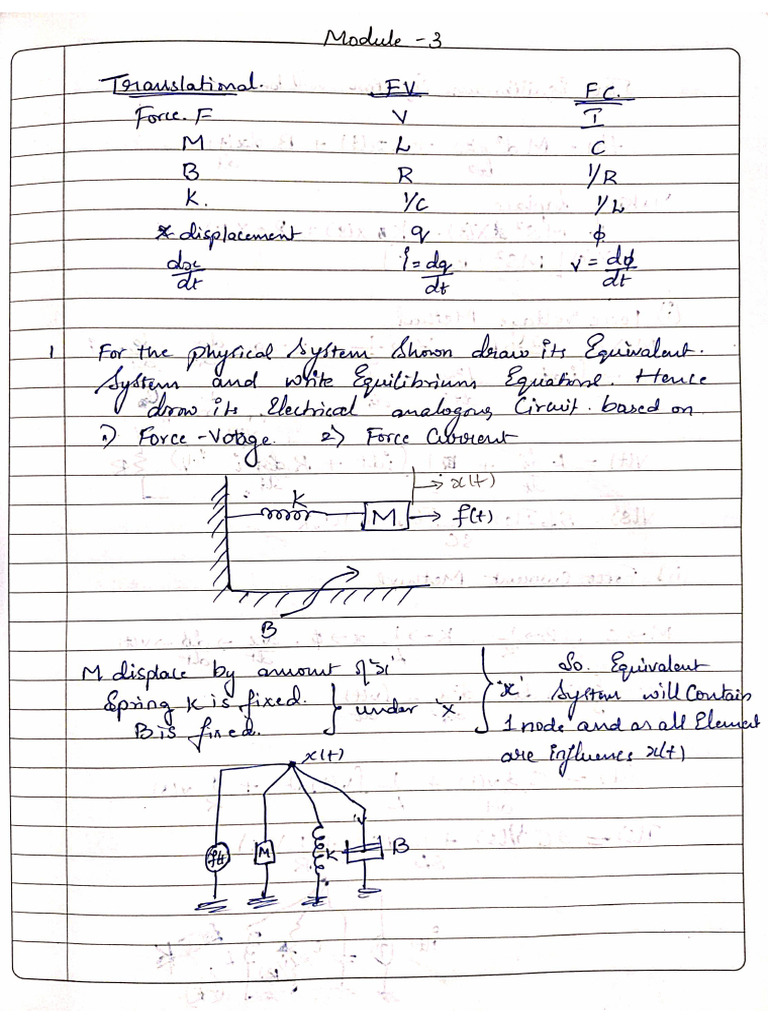 Module -3
Translational. FV FC.
Force. F V I
M L C
B R 1/R
K. 1/C 1/L
x displacement .q φ
dx/dt i = dq/dt v = dφ/dt
1 For the physical System Shown draw its Equivalent.
System and write Equilibrium Equations. Hence
draw its Electrical analogous Circuit. based on
1) Force -Votage. 2) Force Current
→ x(t)
K
M → f(t)
B
M displace by amount of 'x'
Spring K is fixed.
B is fixed.
under 'x'
So. Equivalent
'x'. System will Contain
1 node and as all Element
are influences x(t)
x(t)
f(t) M K B